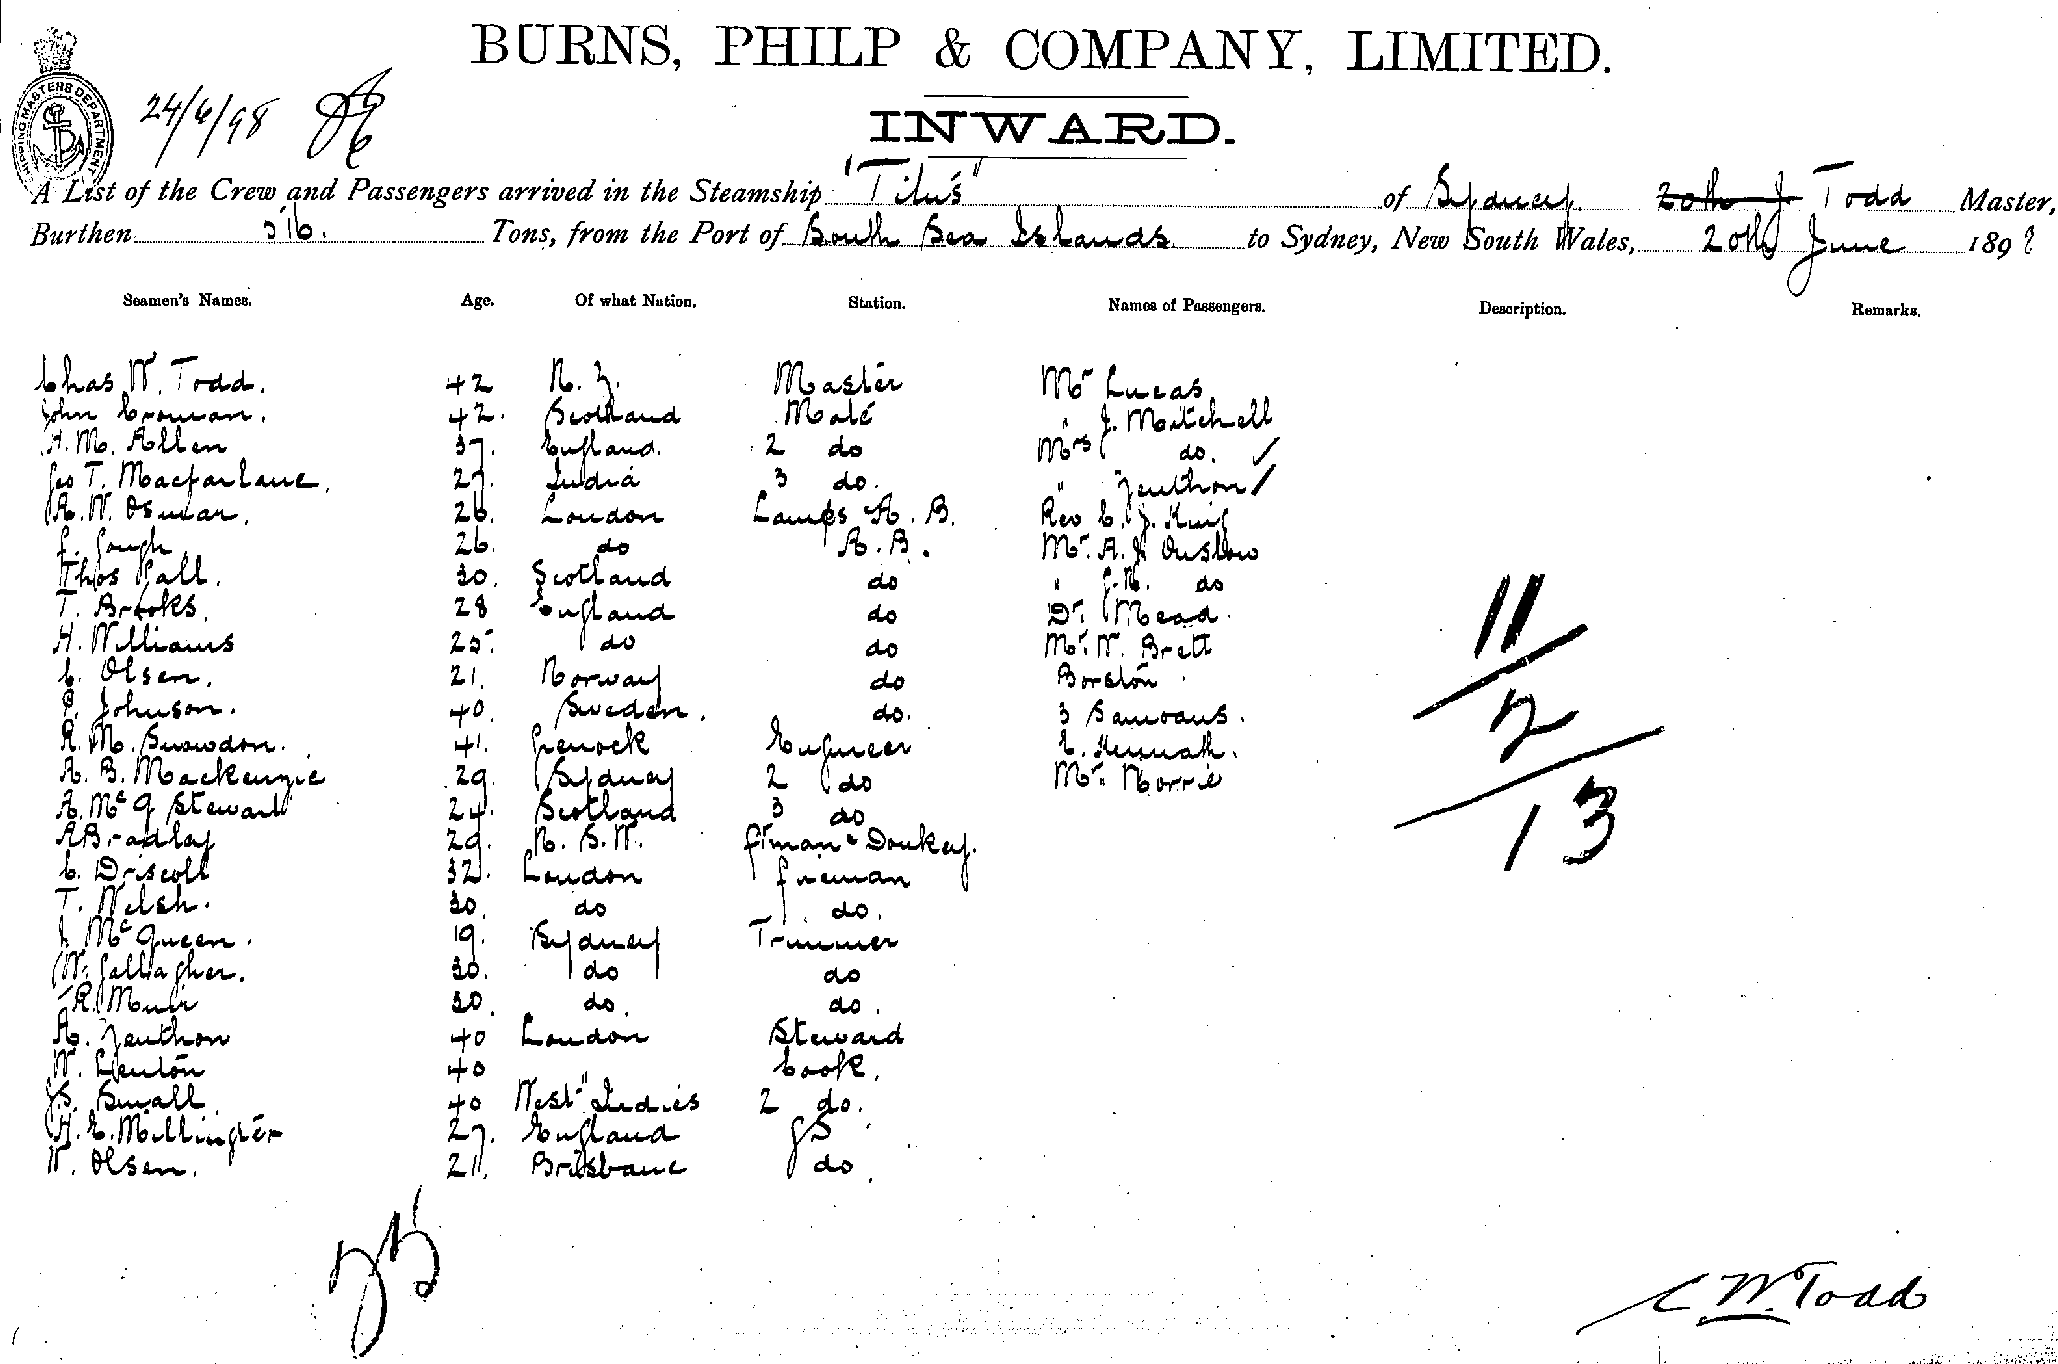 BURNS, PHILP & COMPANY, LIMITED.
INWARD.
SHIPPING MASTERS DEPARTMENT
24/6/98
A List of the Crew and Passengers arrived in the Steamship "Titus" of Sydney 20th J Todd Master,
Burthen 516. Tons, from the Port of South Sea Islands to Sydney, New South Wales, 20th June 1898
Seamen's Names. Age. Of what Nation. Station. Names of Passengers. Description. Remarks.
Chas W. Todd. 42 N. Z. Master Mr Lucas
John Croman. 42. Scotland Mate " J. Mitchell
A. M. Allen 37. England. 2 do Mrs do.
Geo T. Macfarlane. 27. India 3 do. " Zeuthon
A. W. Osmar. 26. London Lamps A. B. Rev C. J. King
Gough 26. do A. B. Mr. A. J. Onslow
Thos Hall. 30. Scotland do " do
T. Brooks. 28 England do Dr. Mead.
H. Williams 25. do do Mr. W. Brett
C. Olsen. 21. Norway do Borston
P. Johnson. 40. Sweden. do. 3 Samoans.
R. M. Snowdon. 41. Greenock Engineer
A. B. Mackenzie 29. Sydney 2 do Mr. Norrie
A. Mc G Stewart 24. Scotland 3 do
A Bradley 29. N. S. W. f'man & Donkey.
C. Driscoll 32. London fireman
T. Welsh. 30. do do.
J McQueen. 19. Sydney Trimmer
W. Gallagher. 30. do do
R. Muir 30. do. do.
A. Zeuthon 40 London Steward
W. Lenton 40 " Cook.
J S. Small 40 West Indies 2 do.
A. E. Millington 27. England GS
W. Olsen. 21. Brisbane do
11
2
13
25
C W. Todd